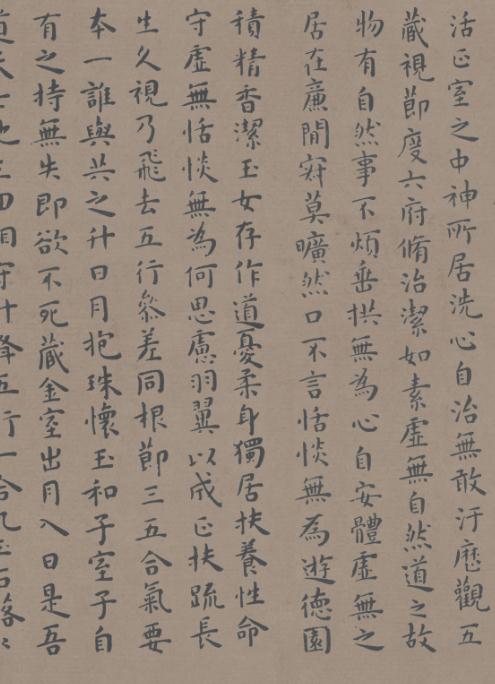 活正室之中神所居洗心自治無敢汙歷觀五
藏視節度六府脩治潔如素虛無自然道之故
物有自然事不煩垂拱無為心自安體虛無之
居在廉間寂莫曠然口不言恬惔無為遊德園
積精香潔玉女存作道憂柔身獨居扶養性命
守虛無恬惔無為何思慮羽翼以成正扶疏長
生久視乃飛去五行參差同根節三五合氣要
本一誰與共之升日月抱珠懷玉和子室子自
有之持無失即欲不死藏金室出月入日是吾